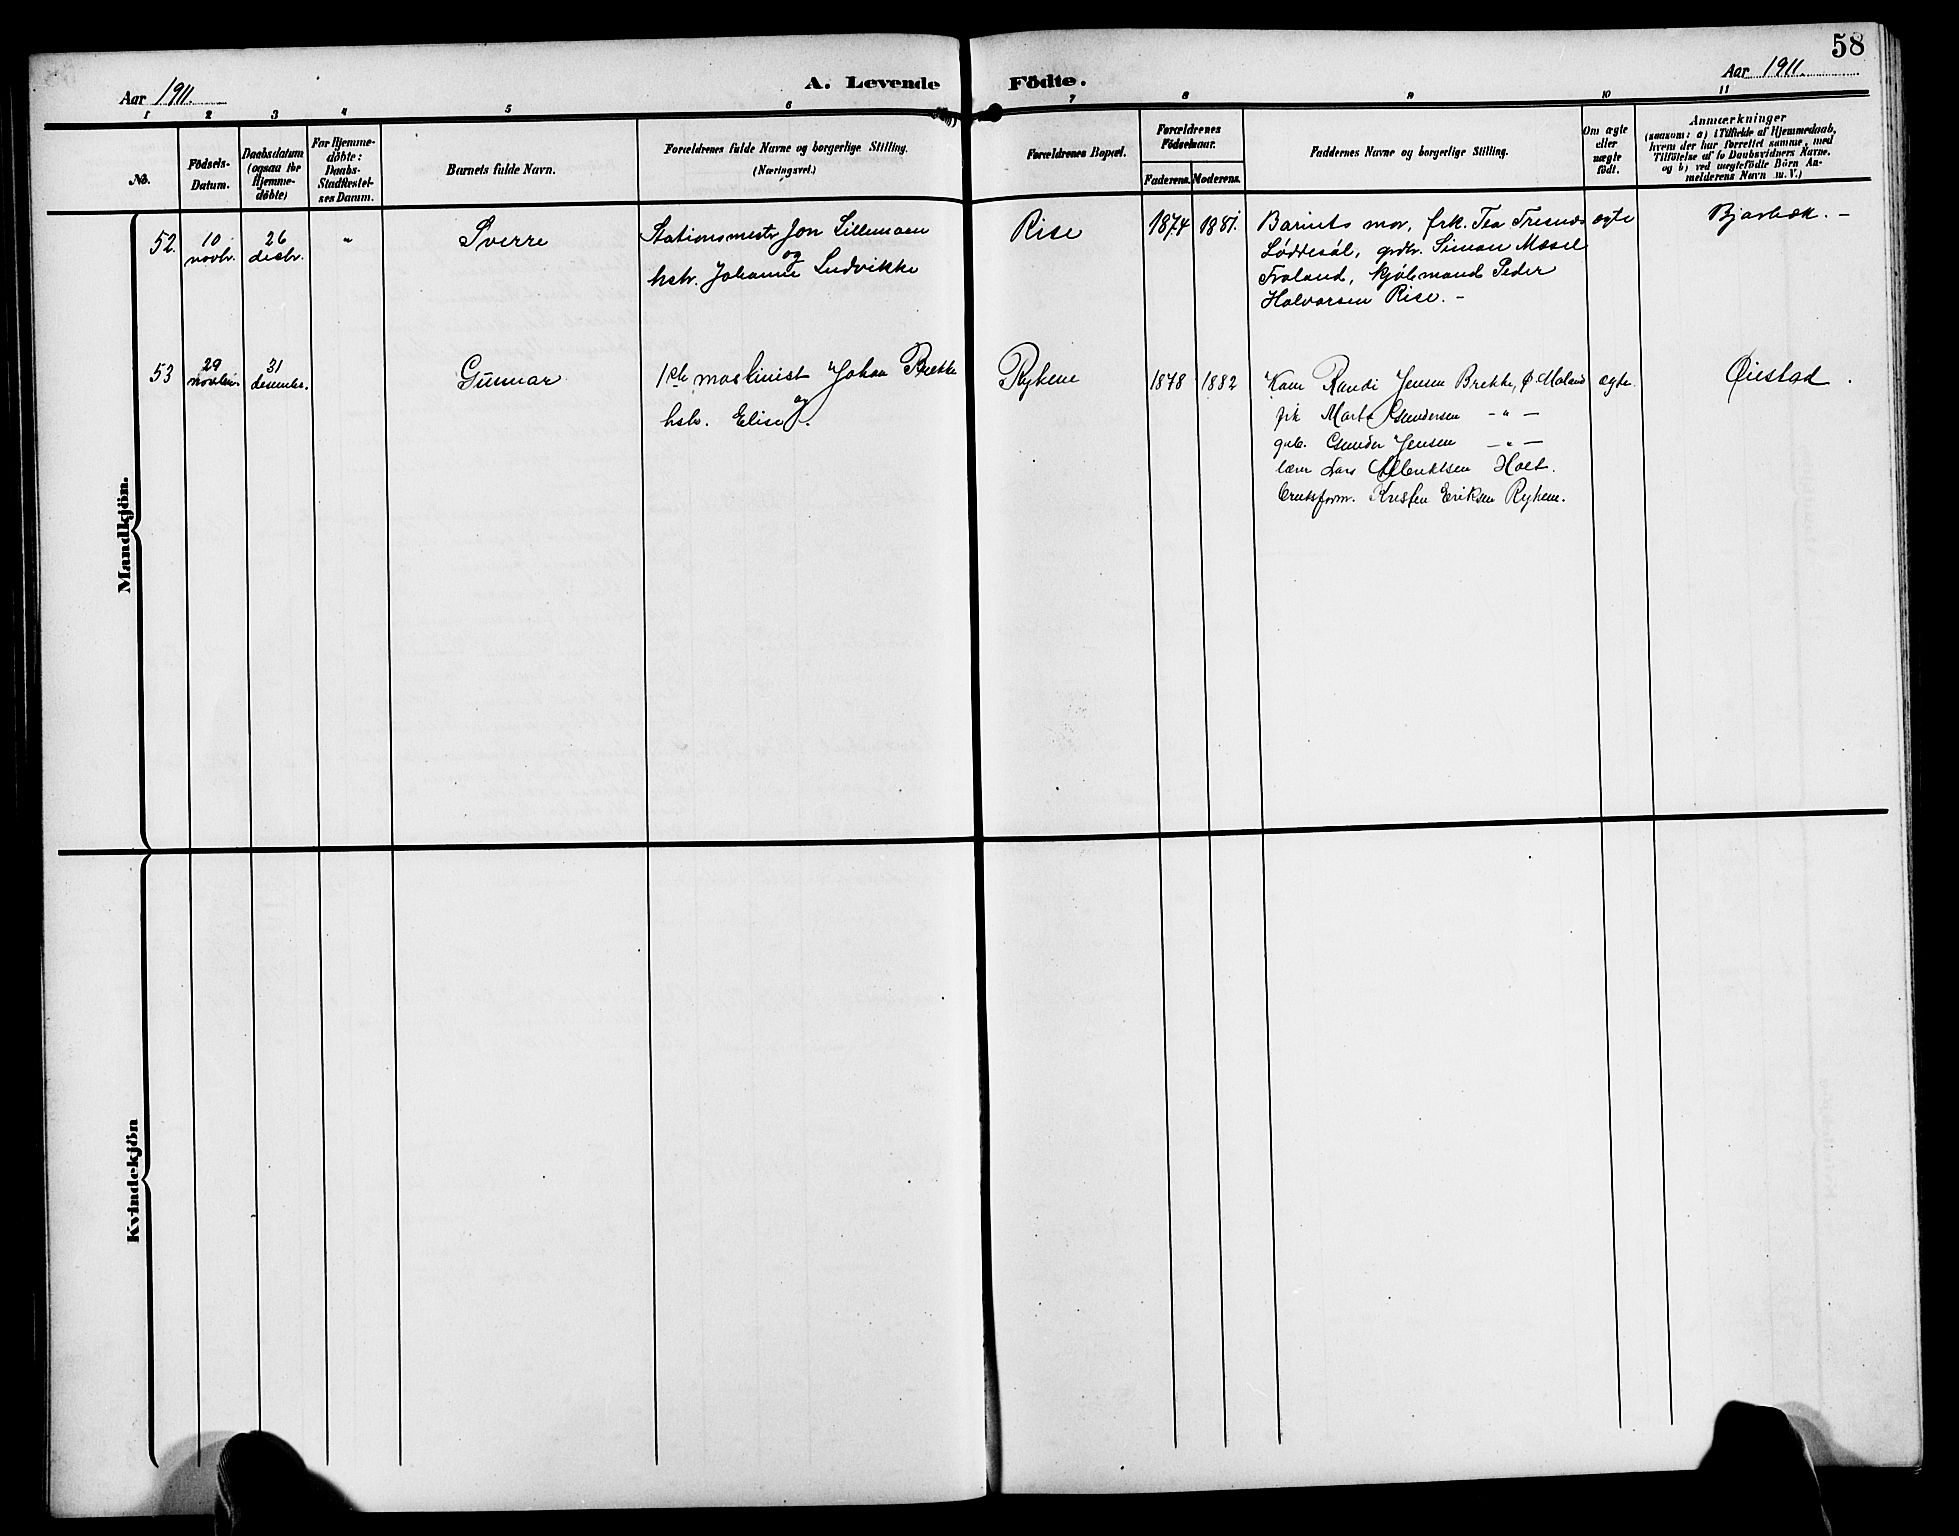 58
Aar 1911.
A. Levende Födte.
Aar 1911.
1 2 3 4 5 6 7 8 9 10 11
No.
Födsels-
Datum.
Daabsdatum
(ogsaa for
Hjemme-
döbte)
For Hjemme-
döbte:
Daabs-
Stadfæstel-
ses Datum.
Barnets fulde Navn.
Forældrenes fulde Navne og borgerlige Stilling.
(Næringsvei.)
Forældrenes Bopæl.
Forældrenes
Födselsaar.
Faderens. Moderens.
Faddernes Navne og borgerlige Stilling.
Om ægte
eller
uægte
födt.
Anmærkninger
(saasom: a) i Tilfælde af Hjemmedaab,
hvem der har forrettet samme, med
Tilföielse af to Daabsvidners Navne.
og b) ved uægtefödte Börn An-
melderens Navn m. V.)
Mandkjön.
52. 10 novbr. 26 desbr. " Sverre
Stationsmestr Jon Lillemaen
og
hstr. Johanne Ludvikke
Rise 1874 1881.
Barnets mor, frk. Tea Tresnes
Løddesøl, grdbr. Simon Messel
Froland, kjøbmand Peder
Halvorsen Rise. –
ægte
Bjorbæk. –
53 29 novbr. 31 desember. Gunnar
1ste maskinist Johan Brekke
og
hstr. Elise.
Rykene 1878 1882
Kone Randi Jensen Brekke, Ø. Moland
frk Marta Gundersen – " –
gbr. Gunder Jensen – " –
lærer Lars Albriktsen Holt.
Kristen Eriksen Rykene.
ægte.
Øiestad.
Kvindekjön